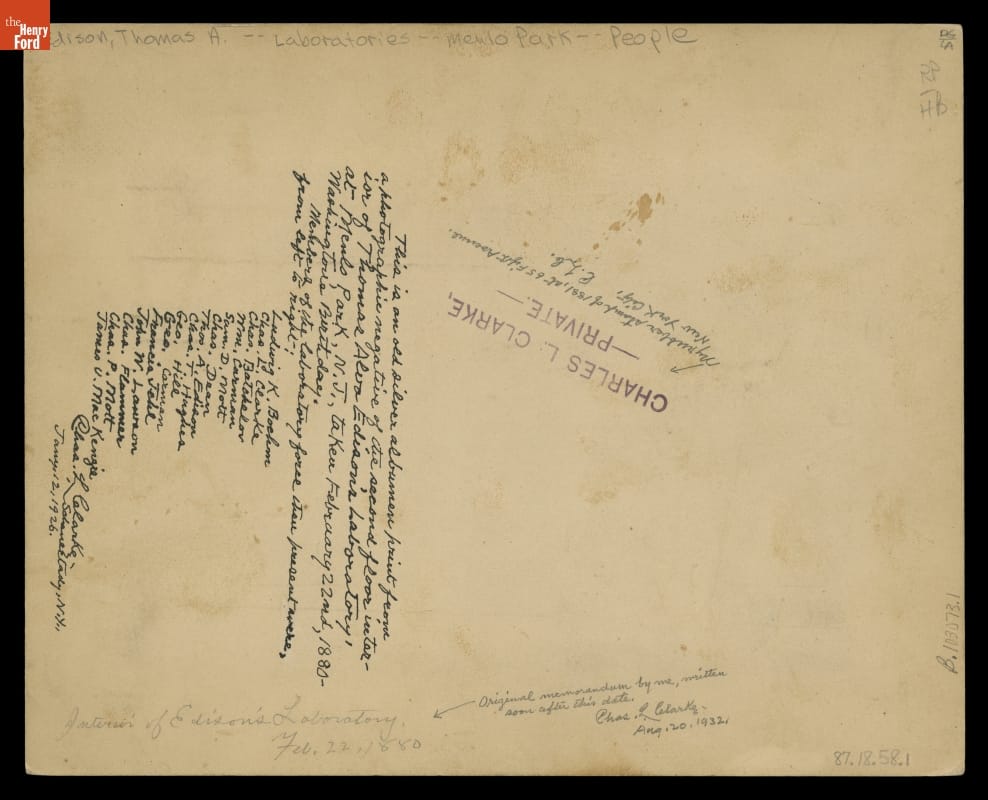 the
Henry
Ford
Edison, Thomas A. -- Laboratories -- Menlo Park -- People
This is an old silver albumen print from
a photographic negative of the second floor inter-
ior of Thomas Alva Edison's Laboratory,
at Menlo Park, N.J., taken February 22nd, 1880-
Washington's Birthday.
Members of the laboratory force then present were,
from left to right:,
Ludwig K. Boehm
Chas. L. Clarke
Chas. Batchelor
Wm. Carman
Sam. D. Mott
Chas. Dean
Thos. A. Edison
Chas. T. Hughes
Geo. Hill
Geo. Carman
Francis Jehl
John W. Lawson
Chas. Flammer
Chas. P. Mott
James U. MacKenzie
Chas. L. Clarke,
Schenectady, N.Y.,
Jany. 12, 1926.
CHARLES L. CLARKE,
—PRIVATE.—
My rubber stamp of 1881, at 65 Fifth Avenue.
New York City,
C.L.C.
Interior of Edison's Laboratory.
Feb. 22, 1880
Original memorandum by me, written
soon after this date.
Chas. L. Clarke.
Aug. 20, 1932.
B.103073.1
87.18.58.1